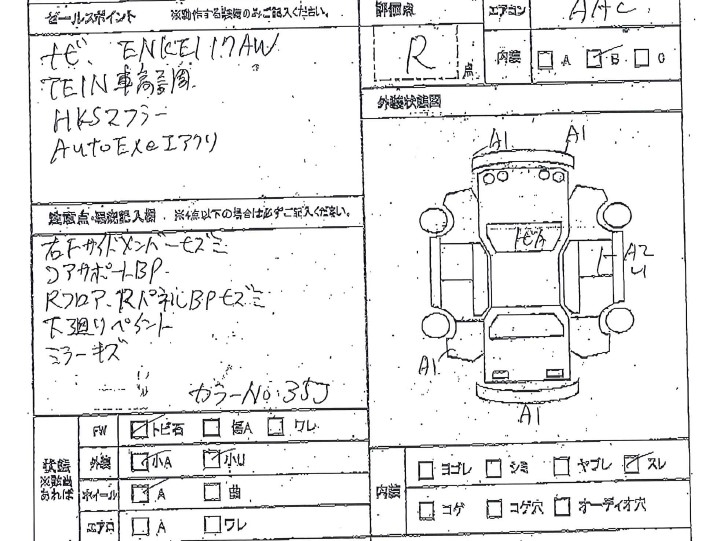 セールスポイント ※動作する装備のみご記入ください。
ナビ、ENKEI 17AW
TEIN車高調
HKSマフラー
AutoExeエアクリ
注意点・瑕疵記入欄 ※4点以下の場合は必ずご記入ください。
右Fサイドメンバーモズミ
コアサポートBP
Rフロア、RパネルBPモズミ
下廻りペイント
ミラーキズ
カラーNo:35J
状態
※該当あれば
FW トビ石 傷A ワレ
外装 小A 小U
ホイール A 曲
エアロ A ワレ
評価点
R 点
エアコン AAC
内装 A B C
外装状態図
A1 A1
トビA
A2
U
A1
A1
内装 ヨゴレ シミ ヤブレ スレ
コゲ コゲ穴 オーディオ穴